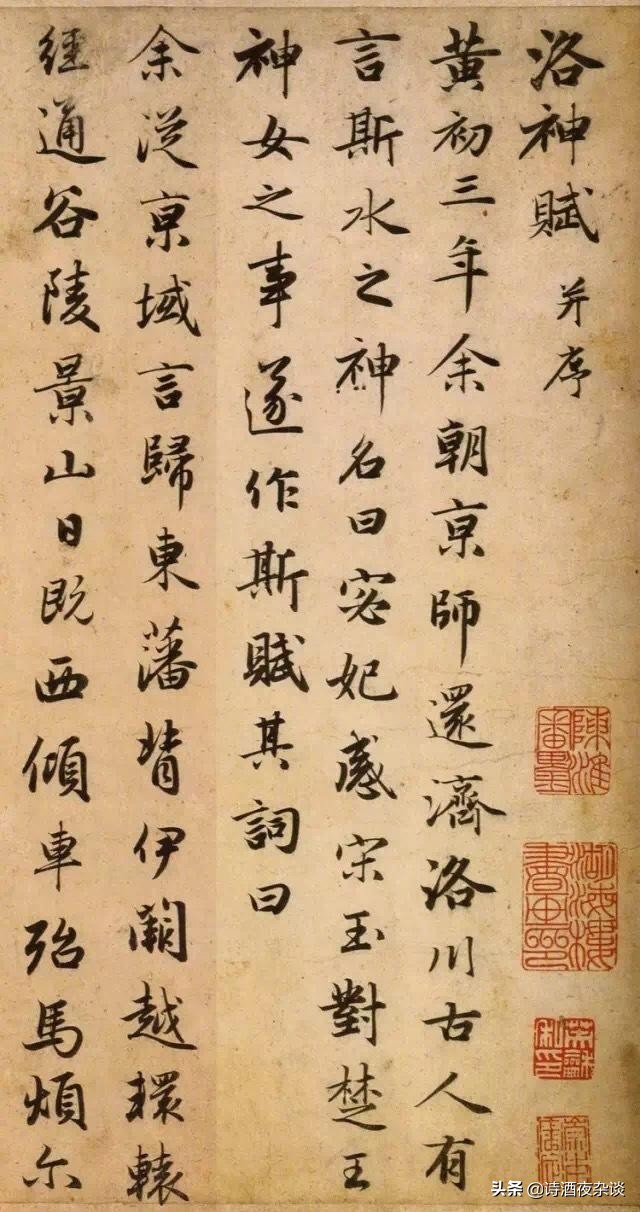 洛神賦 并序
黃初三年余朝京師還濟洛川古人有
言斯水之神名曰宓妃感宋玉對楚王
神女之事遂作斯賦其詞曰
余從京域言歸東藩背伊闕越轘轅
經通谷陵景山日既西傾車殆馬煩尔
头条 @诗酒夜杂谈